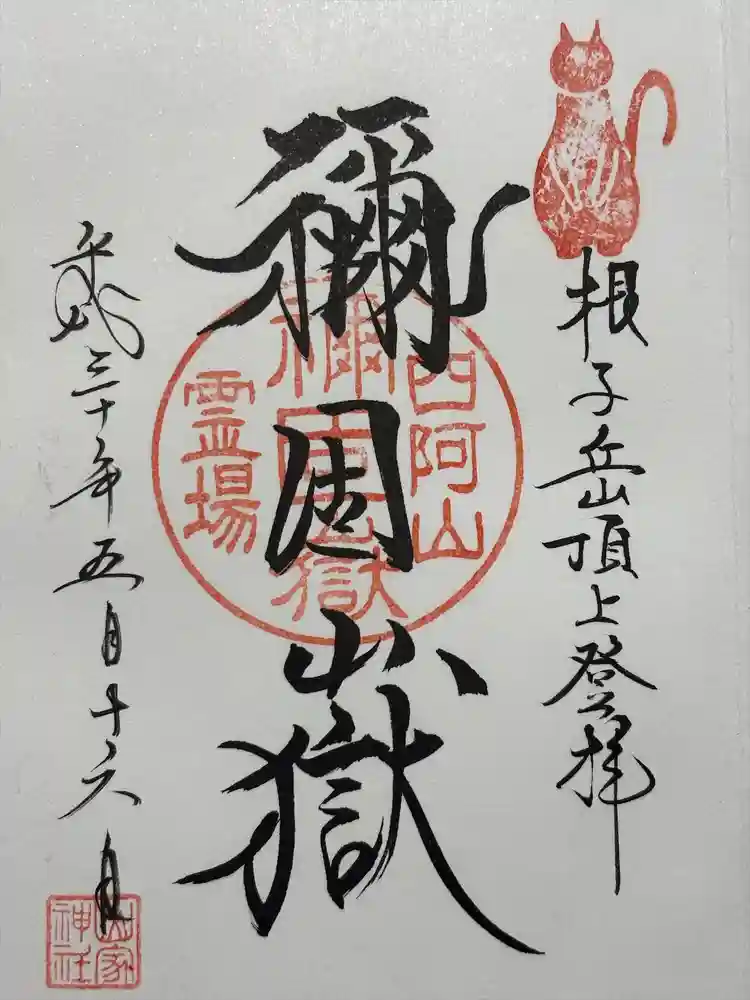 根子岳頂上登拝
禰固嶽
四阿山
禰固嶽
霊場
平成三十年五月十六日
山家
神社